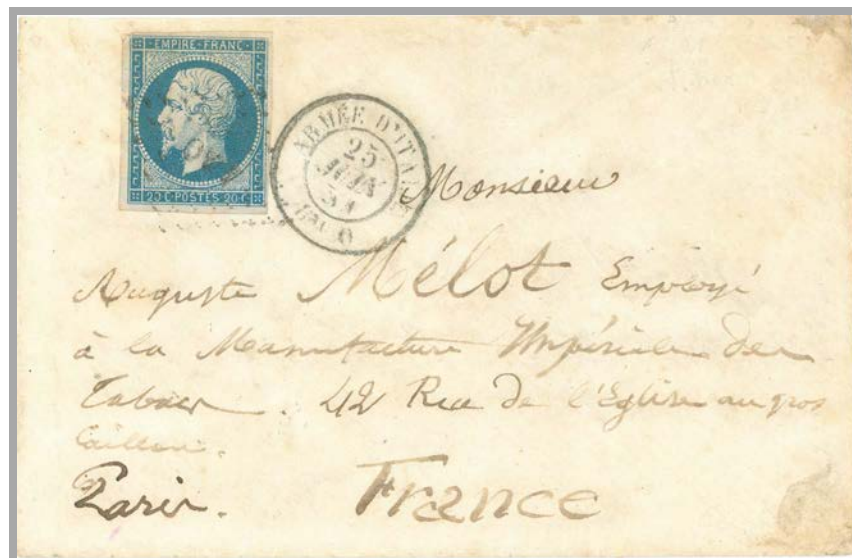 EMPIRE FRANC
20 C POSTES 20 C
ARMÉE D'ITALIE
25
JUIN
59
Bau O
Monsieur
Auguste Mélot Employé
à la Manufacture Impériale des
Tabacs. 42 Rue de l'Eglise au gros
Caillou.
Paris. France